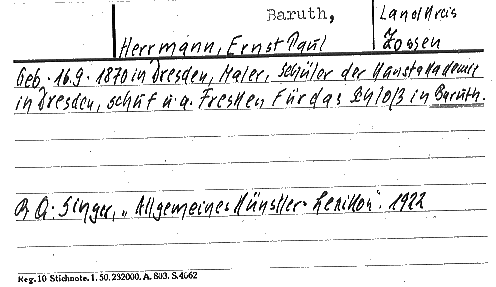 Baruth, Landkreis
Herrmann, Ernst Paul Zossen
Geb. 16.9.1870 in Dresden, Maler, Schüler der Kunstakademie
in Dresden, schuf u.a. Fresken für das Schloß in Baruth.
H. A. Singer, „Allgemeines Künstler-Lexikon". 1922
Reg. 10 Stichnote. 1. 50. 232000. A. 803. S. 4062